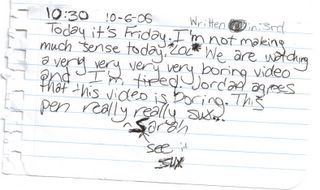 10:30 10-6-06 Written in 3rd
Today it's Friday. I'm not making
much sense today. LOL We are watching
a very very very very boring video
and I'm tired. Jordan agrees
that this video is boring. This
pen really really sux...
~Sarah
see
sux